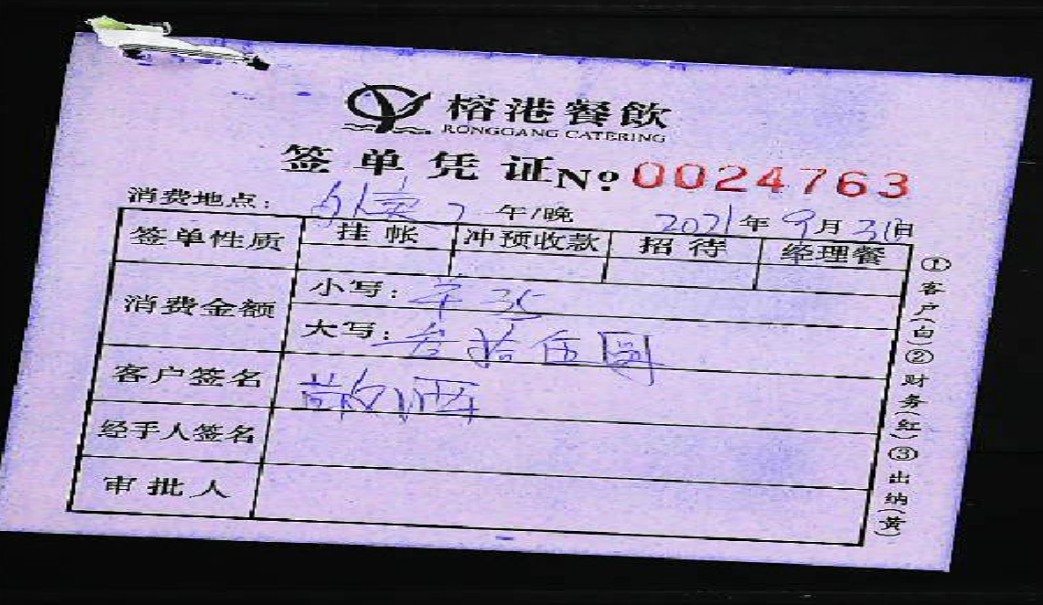 榕港餐飲
RONGGANG CATERING
签单凭证 №0024763
消费地点：外卖 午/晚 2021年9月3日
签单性质 挂帐 冲预收款 招待 经理餐
消费金额 小写：35
大写：叁拾伍圆
客户签名
经手人签名
审批人
①客户(白)②财务(红)③出纳(黄)